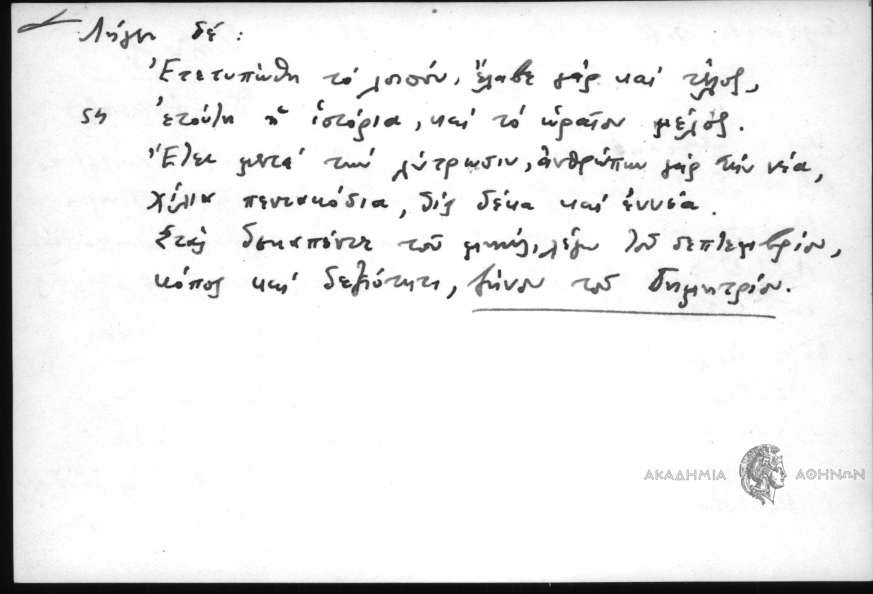 Λήγει δέ:
Ἐτετυπώθη τό λοιπόν, ἔλαβε γάρ καί τέλος,
54 ἐτούτη ἡ ἱστορία, καί τό ὡραῖον μέλος.
Ἔτει μετά τήν λύτρωσιν, ἀνθρώπων γάρ τήν νέα,
χίλια πεντακόσια, δίς δέκα καί ἐννέα.
Στάς δεκαπέντε τοῦ μηνός, λέγω τοῦ σεπτεμβρίου,
κόπος καί δεξιότητι, ζήνου τοῦ δημητρίου.
ΑΚΑΔΗΜΙΑ ΑΘΗΝΩΝ